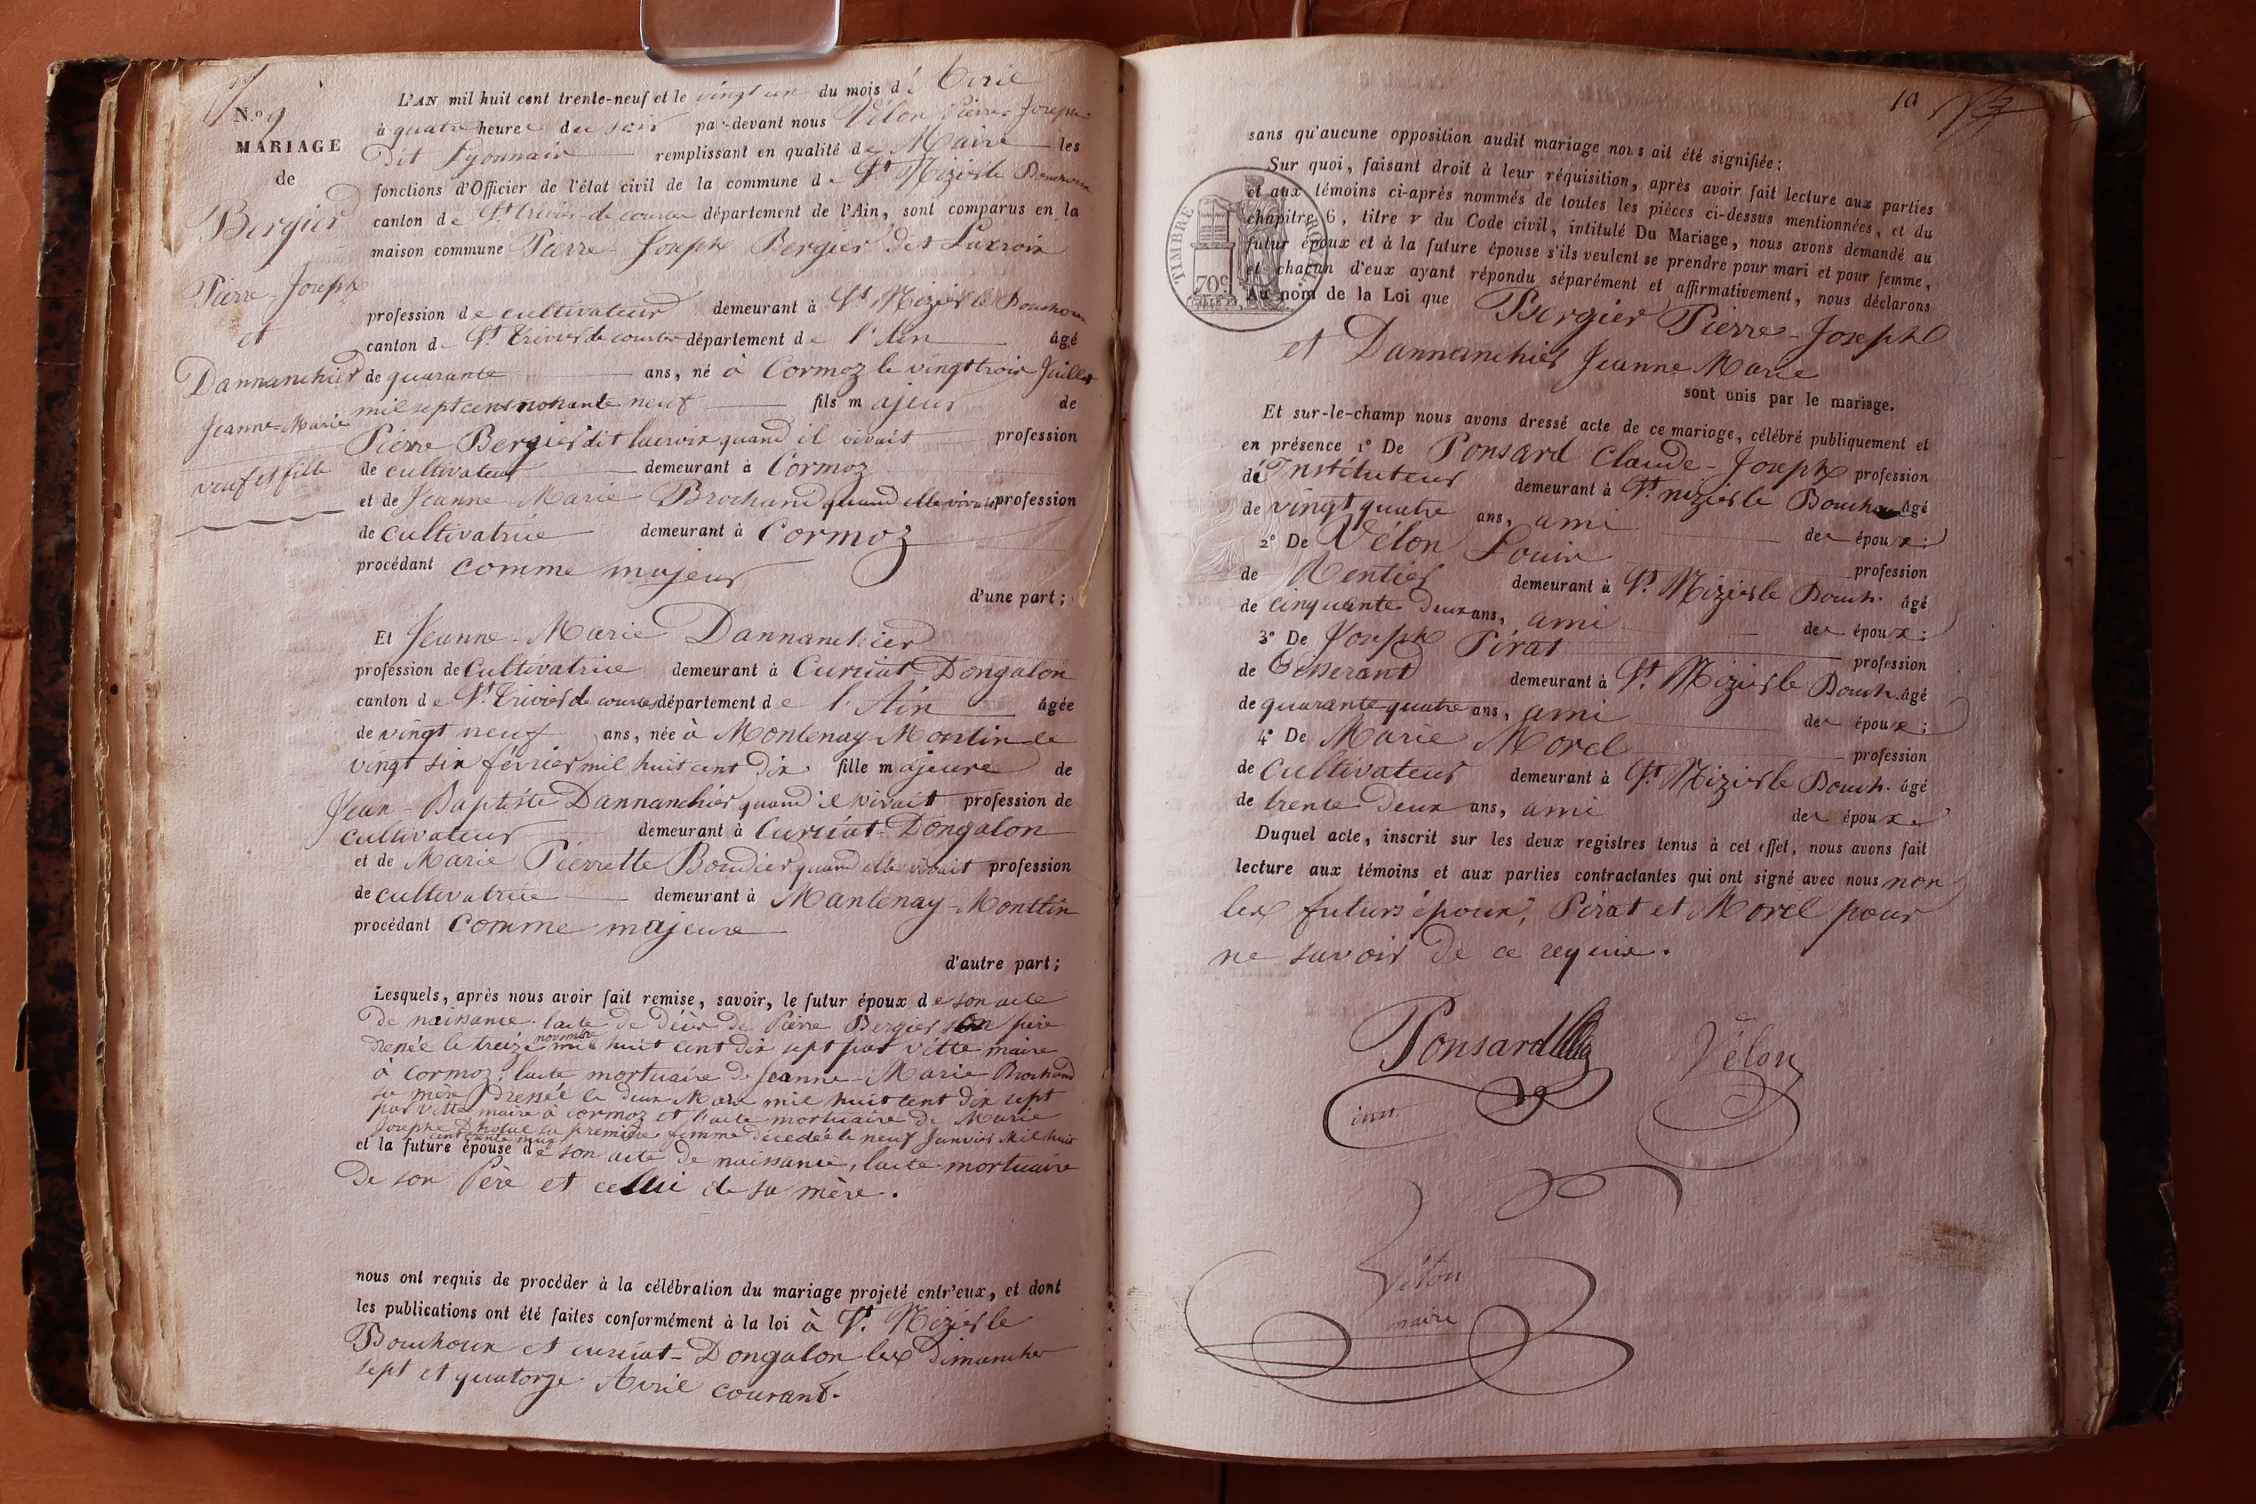 N.o 9
MARIAGE
de
Bergier
Pierre-Joseph
et
Dannanchier
Jeanne-Marie
veuf et fille
L'AN mil huit cent trente-neuf et le vingt un du mois d'Avril
à quatre heures du soir par-devant nous Vélon Pierre-Joseph
Dit Lyonnais remplissant en qualité de Maire les
fonctions d'Officier de l'état civil de la commune de St Nizier le Bouchoux
canton de St trivier-de courtes département de l'Ain, sont comparus en la
maison commune Pierre-Joseph Bergier dit Lacroix
profession de cultivateur demeurant à St Nizier le Bouchoux
canton de St Trivier de courtes département de l'Ain âgé
de quarante ans, né à Cormoz le vingt trois Juillet
mil sept cent nonante neuf fils majeur de
Pierre Bergier dit lacroix quand il vivait profession
de cultivateur demeurant à Cormoz
et de Jeanne Marie Brochand quand elle vivait profession
de cultivatrice demeurant à Cormoz
procédant comme majeur
d'une part;
Et Jeanne-Marie Dannanchier
profession de Cultivatrice demeurant à Curciat-Dongalon
canton de St Trivier de courtes département de l'Ain âgée
de vingt neuf ans, née à Montenay-Montlin le
vingt six février mil huit cent dix fille majeure de
Jean-Baptiste Dannanchier quand il vivait profession de
cultivateur demeurant à Curciat-Dongalon
et de Marie Pierrette Boudier quand elle vivait profession
de cultivatrice demeurant à Mantenay-Montlin
procédant comme majeure
d'autre part;
Lesquels, après nous avoir fait remise, savoir, le futur époux de son acte
De naissance. l'acte de décès de Pierre Bergier son père
dressé le treize novembre mil huit cent dix sept par vitte maire
à Cormoz; l'acte mortuaire de Jeanne-Marie Brochand
sa mère dressée le deux Mars mil huit cent dix sept
par vitte maire à Cormoz et l'acte mortuaire de Marie
Josephe sa première femme décédée le neuf Janvier mil huit
cent trente neuf
et la future épouse de son acte de naissance, l'acte mortuaire
De son Père et celui de sa mère.
nous ont requis de procéder à la célébration du mariage projeté entr'eux, et dont
les publications ont été faites conformément à la loi à St. Nizier le
Bouchoux et curciat-Dongalon les Dimanches
sept et quatorze Avril courant.
10
TIMBRE ROYAL
70c
sans qu'aucune opposition audit mariage nous ait été signifiée:
Sur quoi, faisant droit à leur réquisition, après avoir fait lecture aux parties
et aux témoins ci-après nommés de toutes les pièces ci-dessus mentionnées, et du
chapitre 6, titre v du Code civil, intitulé Du Mariage, nous avons demandé au
futur époux et à la future épouse s'ils veulent se prendre pour mari et pour femme,
et chacun d'eux ayant répondu séparément et affirmativement, nous déclarons
Au nom de la Loi que Bergier Pierre-Joseph
et Dannanchier Jeanne Marie
sont unis par le mariage.
Et sur-le-champ nous avons dressé acte de ce mariage, célébré publiquement et
en présence 1° De Ponsard Claude-Joseph profession
d'Instituteur demeurant à St nizier le Bouchoux âgé
de vingt quatre ans, ami des époux;
2° De Vélon Louis profession
de Rentier demeurant à St. Nizier le Bouch. âgé
de cinquante deux ans, ami des époux;
3° De Joseph Pirat profession
de Tisserant demeurant à St. Nizier le Bouch. âgé
de quarante quatre ans, ami des époux;
4° De Marie Morel profession
de Cultivateur demeurant à St Nizier le Bouch. âgé
de trente deux ans, ami des époux.
Duquel acte, inscrit sur les deux registres tenus à cet effet, nous avons fait
lecture aux témoins et aux parties contractantes qui ont signé avec nous non
les futurs époux, Pirat et Morel pour
ne savoir de ce requis.
Ponsard
Vélon
inst.
Vélon
maire